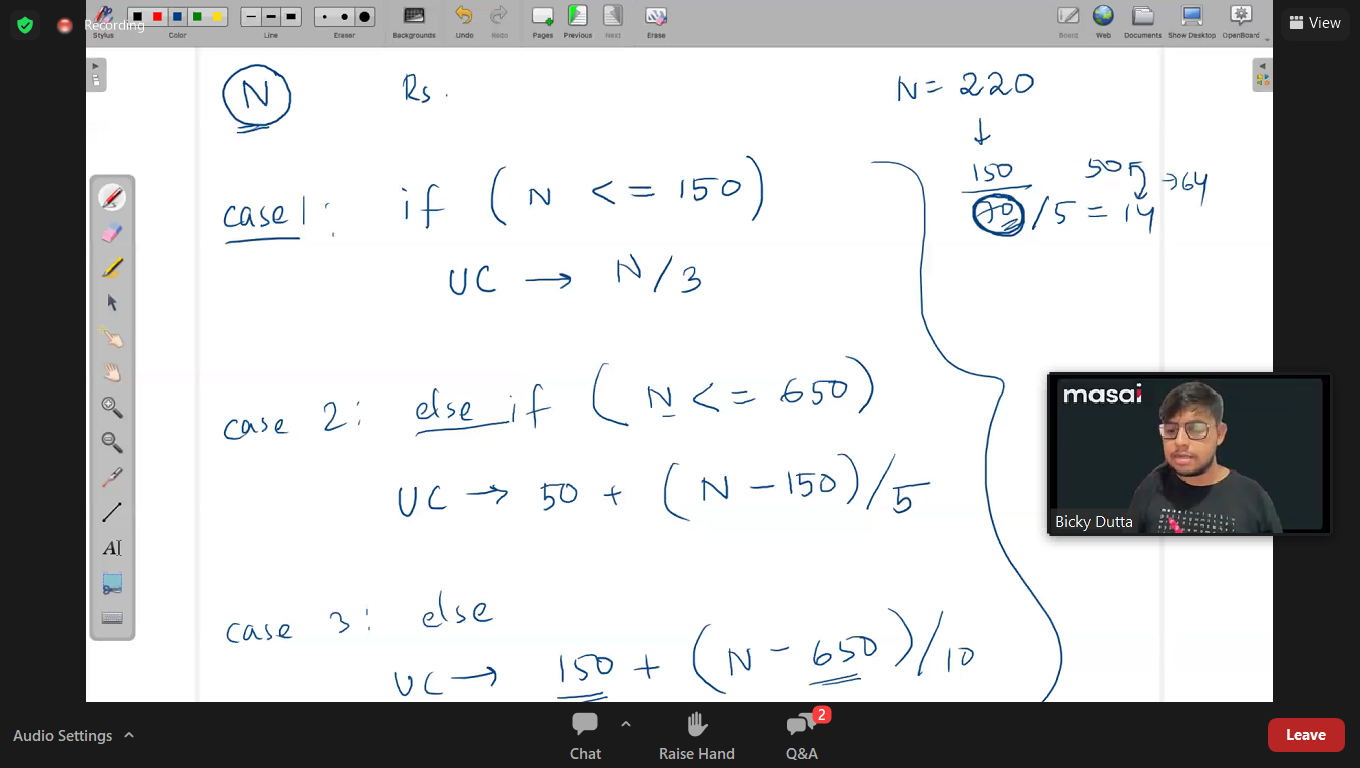 Recording
View
Stylus
Color
Line
Eraser
Backgrounds
Undo
Redo
Pages
Previous
Next
Erase
Board
Web
Documents
Show Desktop
OpenBoard
N Rs.
N = 220
↓
150
70 /5 = 14
50 → 64
case 1: if ( N <= 150 )
UC → N/3
case 2: else if ( N <= 650 )
UC → 50 + ( N - 150 ) / 5
case 3: else
UC → 150 + ( N - 650 ) / 10
AI
masai
Bicky Dutta
Audio Settings
Chat
Raise Hand
2
Q&A
Leave